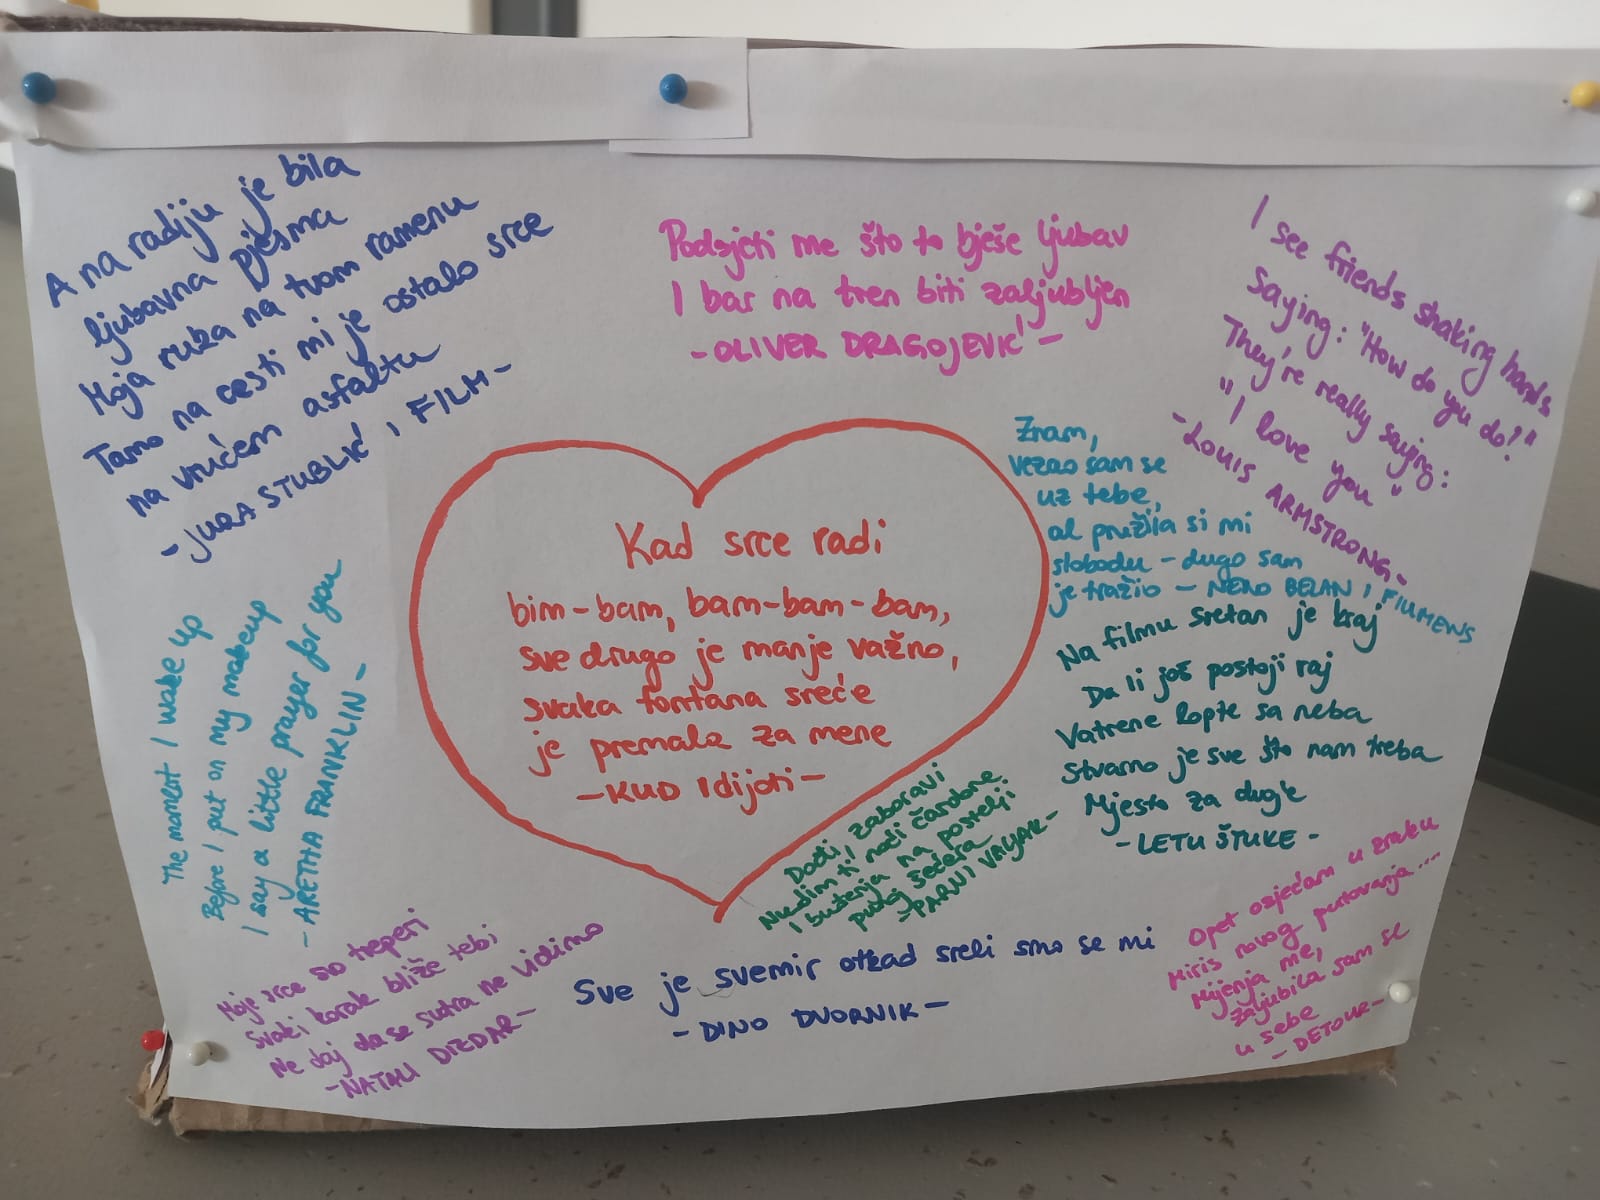 A na radiju je bila
ljubavna pjesma
Moja ruža na tvom ramenu
Tamo na cesti mi je ostalo srce
na vrućem asfaltu
-JURA STUBLIĆ I FILM-
Podsjeti me što to bješe ljubav
I bar na tren biti zaljubljen
-OLIVER DRAGOJEVIĆ-
I see friends shaking hands
Saying: "How do you do?"
They're really saying:
"I love you"
-LOUIS ARMSTRONG-
Znam,
vezao sam se
uz tebe,
al pružila si mi
slobodu - dugo sam
je tražio - NENO BELAN I FIUMENS
Kad srce radi
bim-bam, bam-bam-bam,
sve drugo je manje važno,
svaka fontana sreće
je premala za mene
-KUD Idijoti-
Na filmu sretan je kraj
Da li još postoji raj
Vatrene lopte sa neba
Stvarno je sve što nam treba
Mjesto za dugle
-LETU ŠTUKE-
The moment I wake up
Before I put on my makeup
I say a little prayer for you
-ARETHA FRANKLIN-
Dođi, zaboravi
Nudim ti noći čarobne
I buđenja na postelji
punoj šećera
-PARNI VALJAK-
Moje srce so treperi
Svaki korak bliže tebi
Ne daj da se sutra ne vidimo
-NATALI DIZDAR-
Sve je svemir otkad sreli smo se mi
-DINO DVORNIK-
Opet osjećam u zraku
Miris novog putovanja....
Mijenja me,
zaljubila sam se
u sebe
-DETOUR-